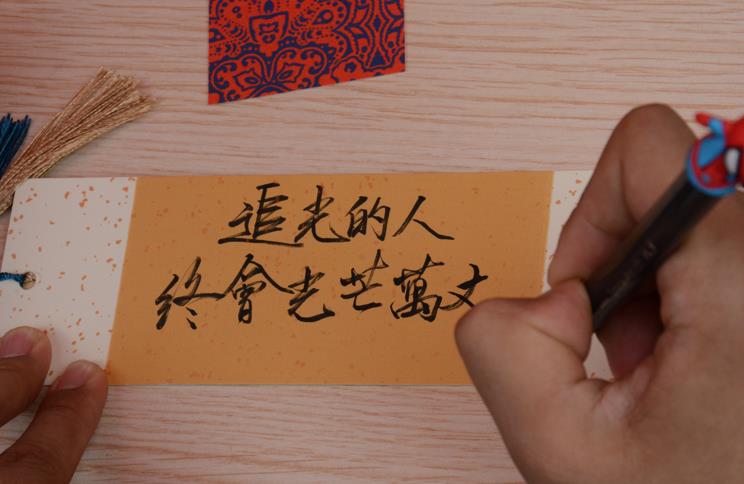 追光的人
终會光芒萬丈